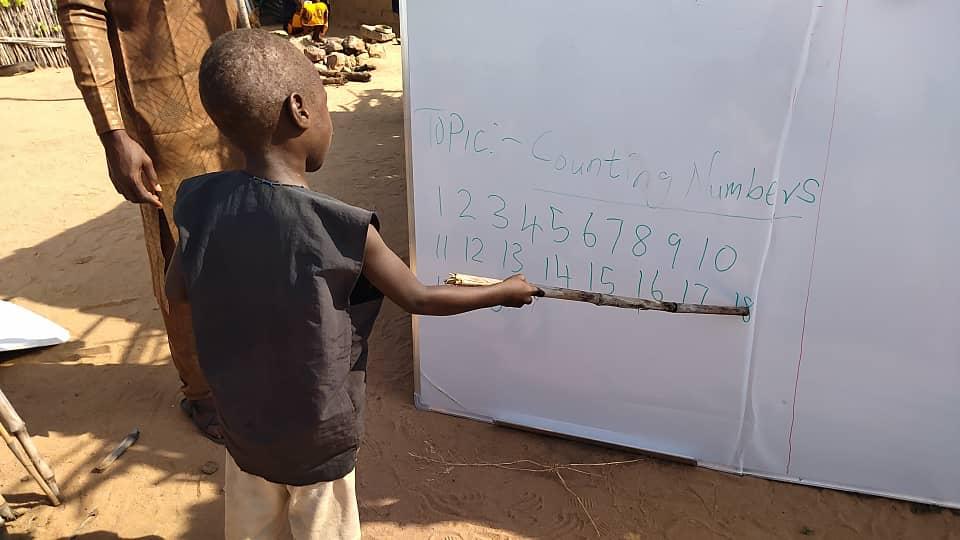 Topic:- Counting Numbers
1 2 3 4 5 6 7 8 9 10
11 12 13 14 15 16 17 18